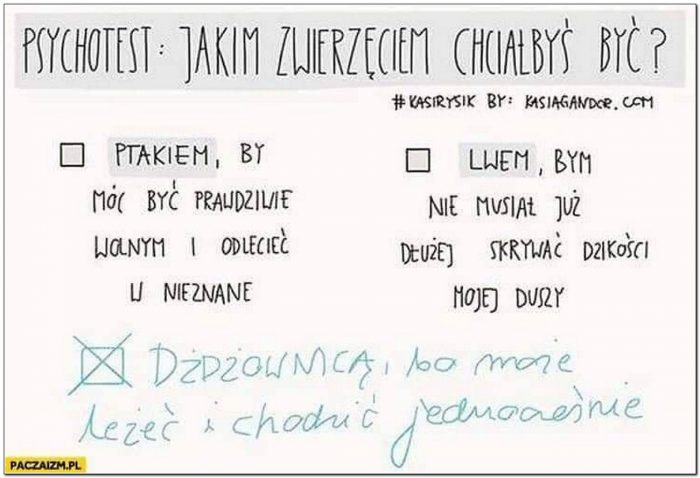 PSYCHOTEST: JAKIM ZWIERZĘCIEM CHCIAŁBYŚ BYĆ?
#KASIRYSIK BY: KASIAGANDOR.COM
PTAKIEM, BY
MÓC BYĆ PRAWDZIWIE
WOLNYM I ODLECIEĆ
W NIEZNANE
LWEM, BYM
NIE MUSIAŁ JUŻ
DŁUŻEJ SKRYWAĆ DZIKOŚCI
MOJEJ DUSZY
DŻDŻOWNICĄ, bo może
leżeć i chodzić jednocześnie
PACZAIZM.PL